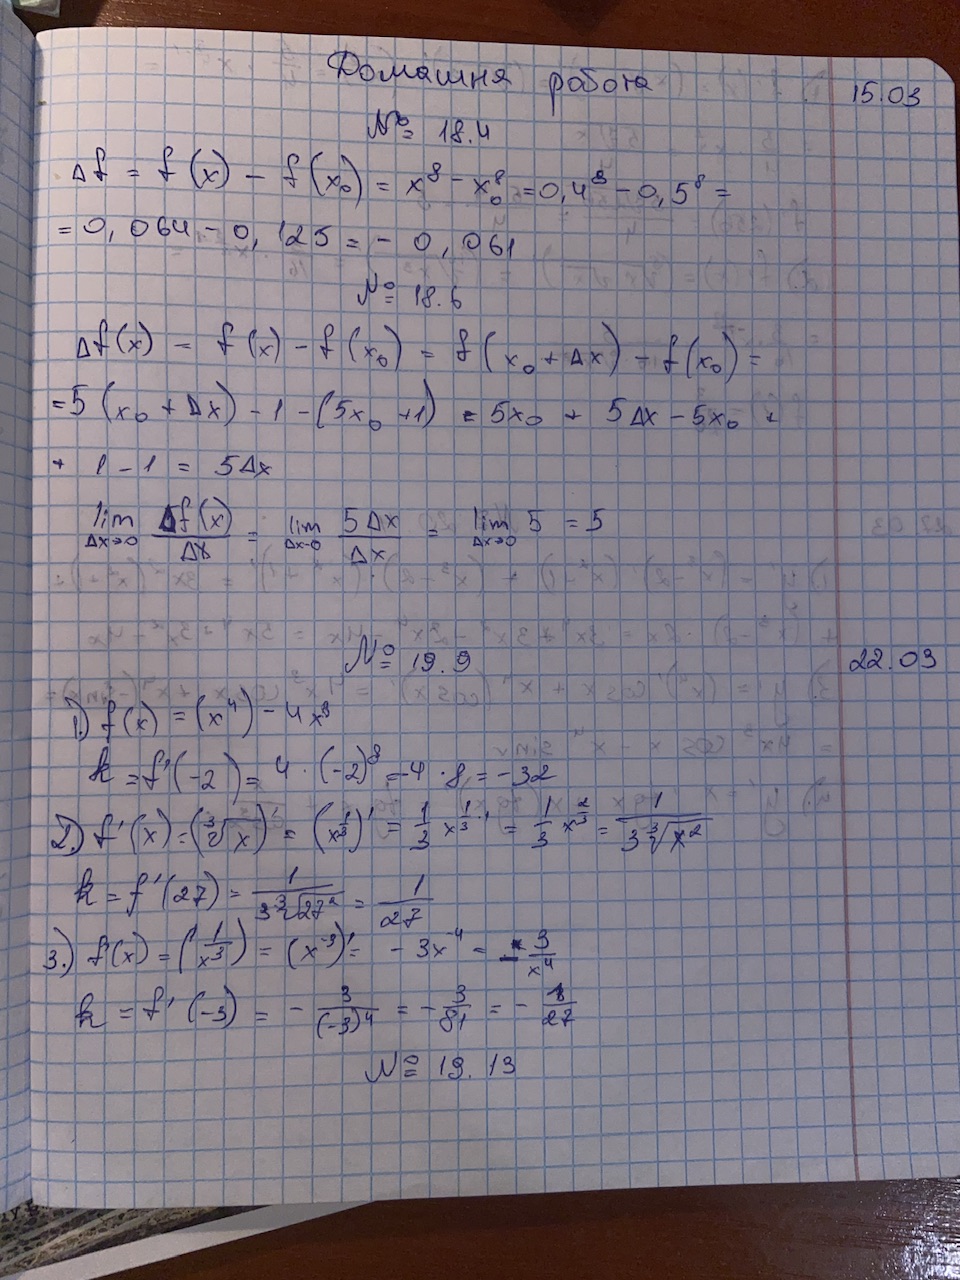 Домашня робота
15.03
№ 18.4
Δf = f(x) - f(x₀) = x⁸ - x₀⁸ = 0,4⁸ - 0,5⁸ =
= 0,064 - 0,125 = - 0,061
№ 18.6
Δf(x) - f(x) - f(x₀) = f(x₀ + Δx) - f(x₀) =
= 5(x₀ + Δx) - 1 - (5x₀ + 1) = 5x₀ + 5Δx - 5x₀ +
+ 1 - 1 = 5Δx
lim Δx→0 Δf(x)/Δx = lim Δx→0 5Δx/Δx = lim Δx→0 5 = 5
№ 19.9
22.03
1.) f(x) = (x⁴) - 4x³
k = f'(-2) = 4 · (-2)⁸ = -4 · 8 = -32
2.) f'(x) = (∛x)' = (x^(1/3))' = 1/3 x^(1/3 - 1) = 1/3 x^(2/3) = 1/(3∛x²)
k = f'(27) = 1/(3∛27²) = 1/27
3.) f'(x) = (1/x³)' = (x⁻³)' = - 3x⁻⁴ = - 3/x⁴
k = f'(-3) = - 3/(-3)⁴ = - 3/81 = - 1/27
№ 19.13